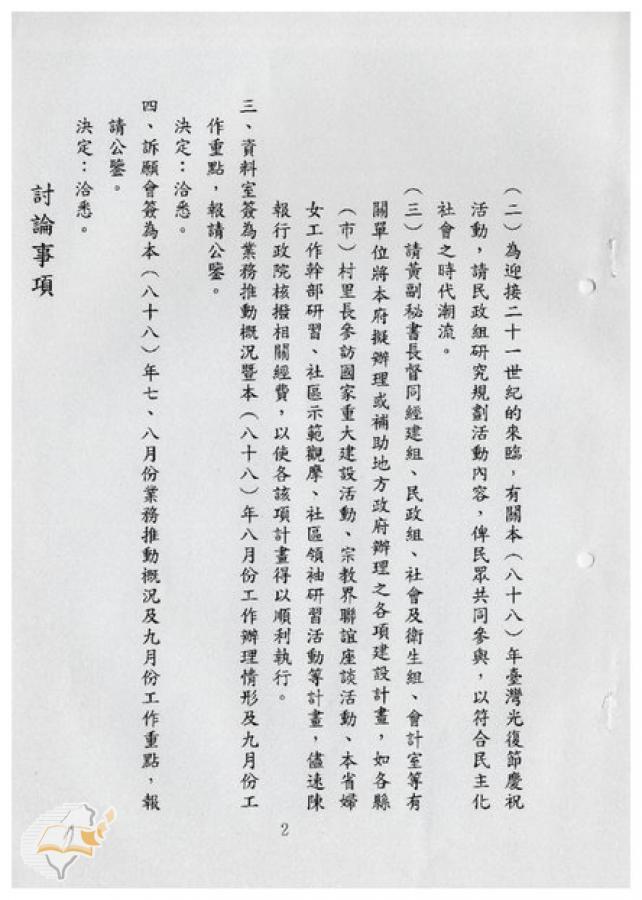 （二）為迎接二十一世紀的來臨，有關本（八十八）年臺灣光復節慶祝
活動，請民政組研究規劃活動內容，俾民眾共同參與，以符合民主化
社會之時代潮流。
（三）請黃副秘書長督同經建組、民政組、社會及衛生組、會計室等有
關單位將本府擬辦理或補助地方政府辦理之各項建設計畫，如各縣
（市）村里長參訪國家重大建設活動、宗教界聯誼座談活動、本省婦
女工作幹部研習、社區示範觀摩、社區領袖研習活動等計畫，儘速陳
報行政院核撥相關經費，以使各該項計畫得以順利執行。
三、資料室簽為業務推動概況暨本（八十八）年八月份工作辦理情形及九月份工
作重點，報請公鑒。
決定：洽悉。
四、訴願會簽為本（八十八）年七、八月份業務推動概況及九月份工作重點，報
請公鑒。
決定：洽悉。
討論事項
2